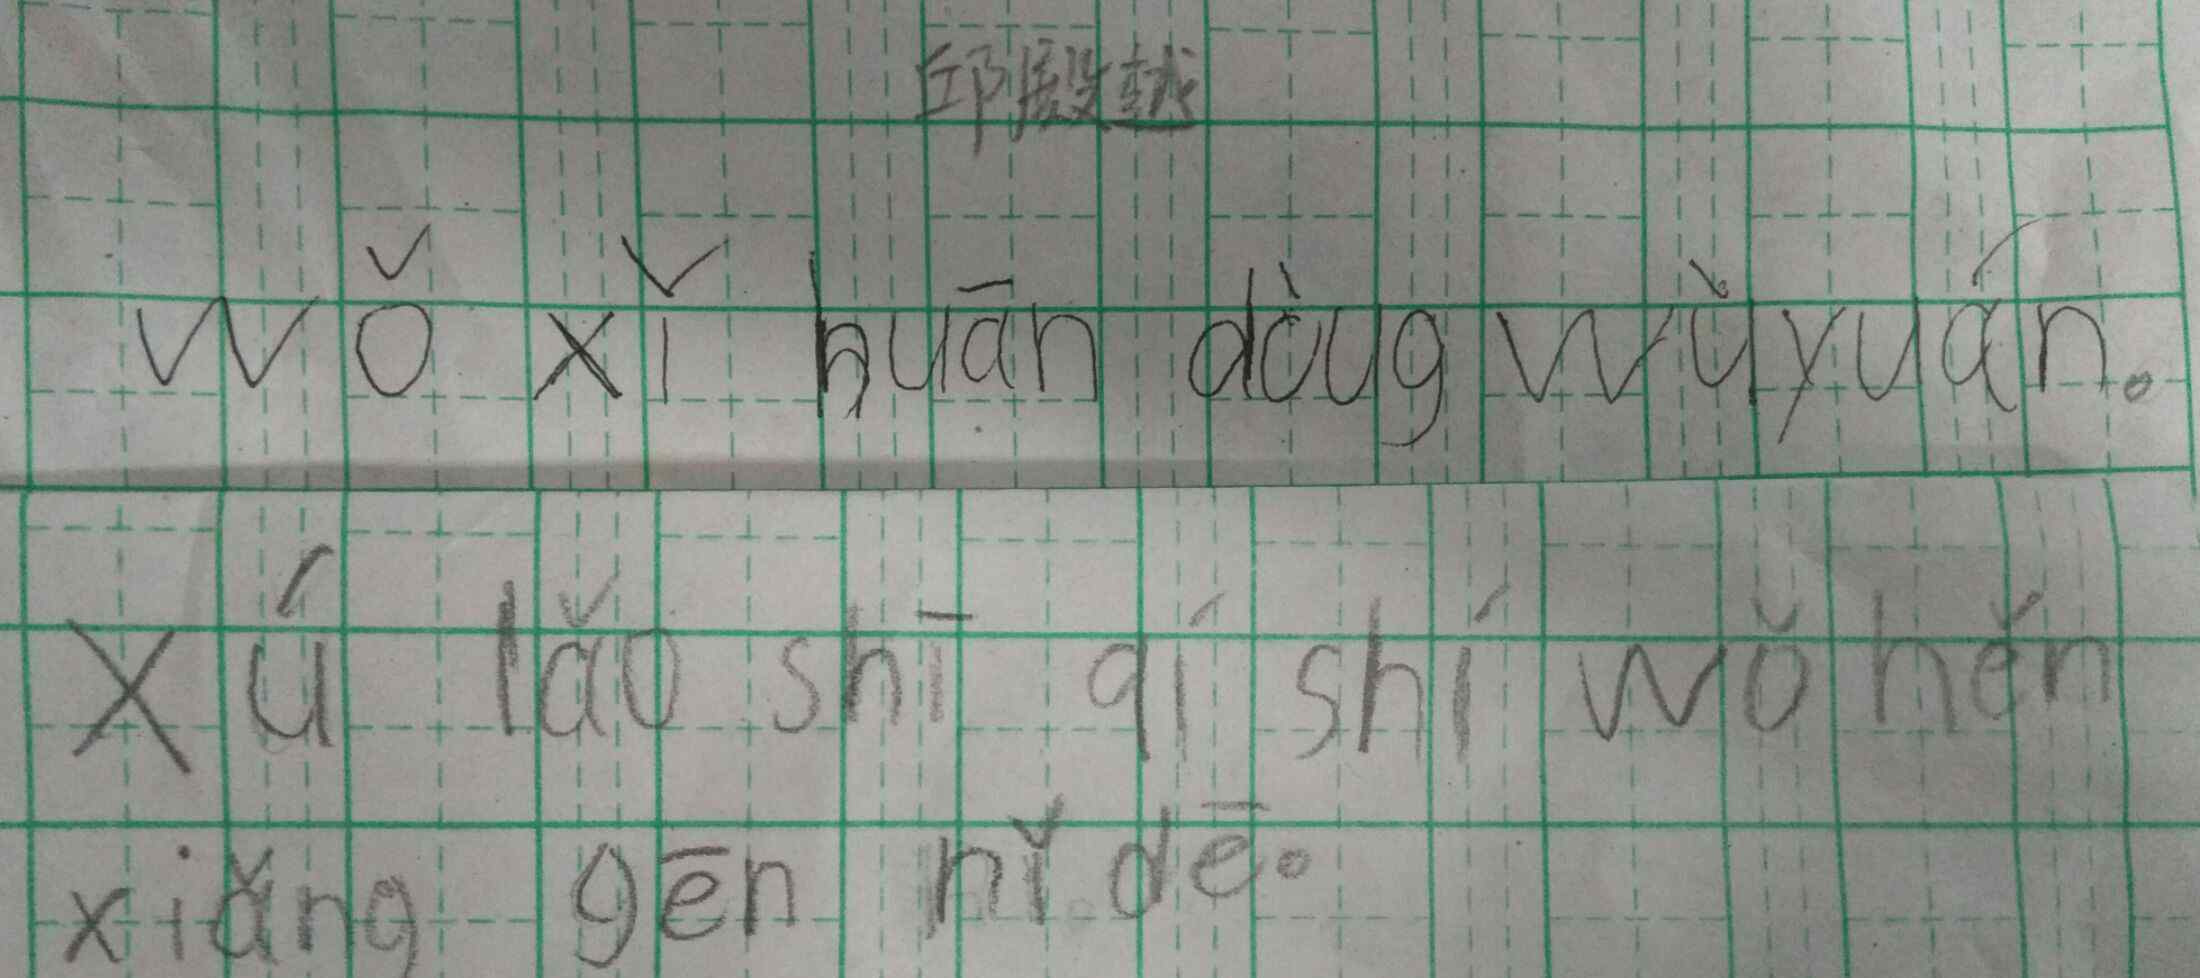 邱殿越
wǒ xǐ huān dòug wùyuán。
xú lǎo shī qí shí wǒ hěn
xiǎng gēn nǐ dē。